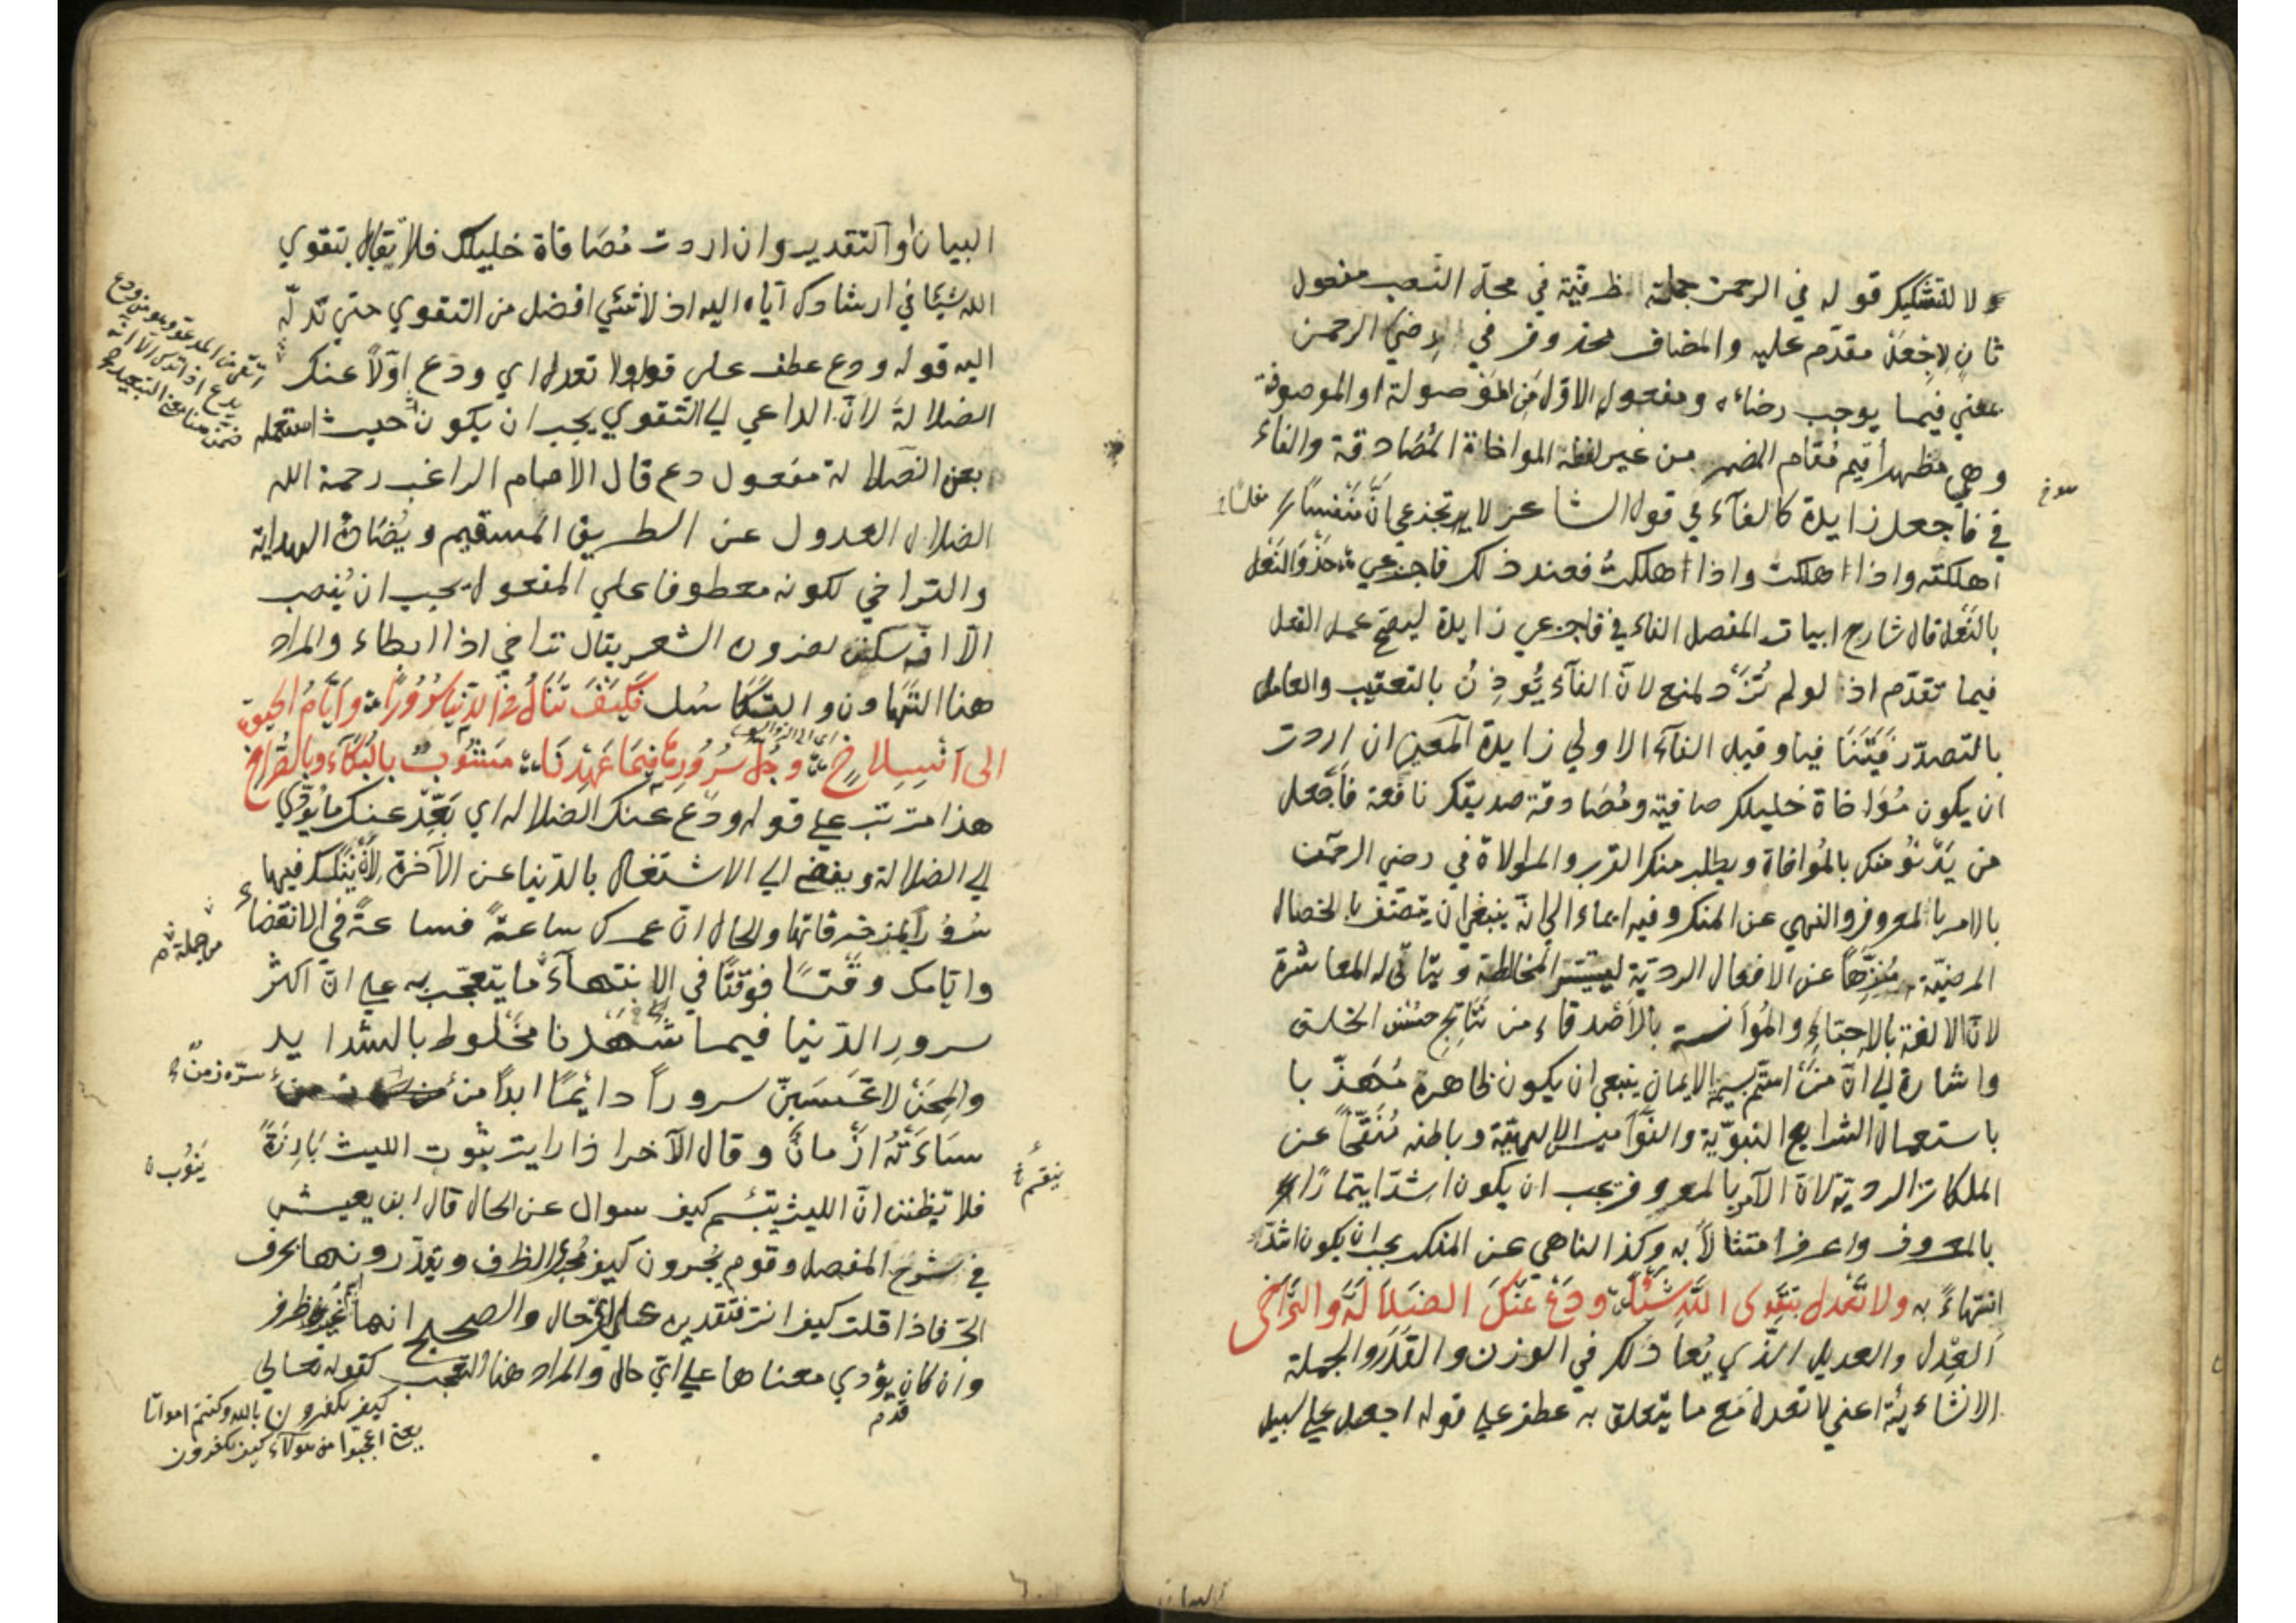 ولا للتشكيك قوله في الرحمن جملة ظرفيّة في محلّ النصب مفعول
ثانٍ لاِجْعَلْ مقدّم عليه والمضاف محذوف في اي في رضيَ الرحمن
يعني فيما يوجب رضاءه ومفعول الاوّل مَن المَوْصولة او الموصوفة
وهي مظهر أقيم مُقام المضمر من غير لفظه المواخاة المُصَادقة والفاء
في فاجعل زايدة كالفآء في قول الشاعر لا تجزعي انّ مُنْفِسًا
اهلكته واذا اهلكتُ فعند ذلك فاجزعي حَذْوَ النَعْل
بالنَعْل قال شارح ابيات المفصل الفاء في فاجزعي زايدة ليصحّ عمل الفعل
فيما تقدّم اذ لو لم تُزَدْ لمنع لانّ الفآء يُوذِنُ بالتعقيب والعامل
بالتصدّر فيتنافيا وقيل الفآء الاولي زايدة المعني ان اردت
ان يكون مُؤاخاة خليلك صافية ومُصَادقة صديقك نافعة فاَجْعل
من يَدْنُو منك بالمُواخاة ويطلب منك القرب والموالاة في رضي الرحمن
بالامر بالمعروف والنهي عن المنكر وفيه ايماء الي انّه ينبغي ان يتّصف بالخصال
المرضيّة مُنزّهًا عن الافعال الرديّة ليتيسّر المخالطة ويتاتّي له المعاشرة
لانّ الالفة بالاحبّاءِ والمُوانسة بالاَصْدقاء من نَتَايج حُسْن الخلق
واشارة الي انّ مَنْ اتّسم بسمة الايمان ينبغي ان يكون ظاهره مُهذّبا
باستعمال الشرايع النبويّة والنّوَاميس الالهيّة وباطنه مُنَقّيً عن
الملكات الرديّة لانّ الآمر بالمعروف يجب ان يكون اشدّ ايتمارًا
بالمعروف واعرف امتثالاً به وكذا الناهي عن المنكر يجب ان يكون اشدّ
انتهاءً به ولا تَعْدِل بتقوى اللّه شَيْئًا ودَعْ عَنْكَ الضَلَالَةَ والتَّرَاخى
العِدْل والعديل الّذي يُعادلك في الوزن والقَدْر والجملة
الانشاءيّة اعني لا تعدل مع ما يتعلق به عطف علي قوله اجعل علي سبيل
البيان
البيان او التقدير وان اردت مُصَافاة خليلك فلا تقابل بتقوي
اللّه شيئًا في ارشادك ايّاه اليه اذ لا شئي افضل من التقوي حتي تدلّه
اليه قوله ودع عطف علي قوله ولا تعدل اي ودع اوّلاً عنك
الضلالة لانّ الداعي الي التّقوي يجب ان يكون حيث استعمله
بعن الضلالة مفعول دع قال الامام الراغب رحمة الله
الضلال العدول عن الطريق المستقيم ويُضَادّه الهداية
والتراخي لكونه معطوفا علي المفعول يجب ان يُنصب
الّا انّه سكن لضرورة الشعر يقال تراخي اذا ابطاء والمراد
هنا التَّهاون والتكاسل فَكَيْفَ تَنَالُ فى الدّنيا سُرُورًا وَاَيَّامُ الحيوة
الى انْسِلاخٍ وجُلّ سُرُورِنا فيمَا عَهِدْنَا مَشُوبٌ بالبُكَآءِ وبالصُّرَاخ
هذا مترتب علي قوله ودَعْ عنك الضلالة اي بَعِّدْ عنك ما يؤدّي
الي الضلالة ويفضي الي الاشتغال بالدّنيا عن الآخرة لانّ نيلك فيها
سُرُورًا بمزخرفاتها والحال انّ عمرك ساعةً فساعةً في الانقضاء
وايّامك وقتًا فوقتًا في الانتهآء ما يتعجّب به علي انّ اكثر
سرور الدّنيا فيما شَهِدنا مخلوط بالشدايد
والمِحَن لا تحسَبَنّ سروراً دائمًا ابداً من سرّه زمنٌ
سَاءَتْهُ ازْمانٌ وقال الآخر اذا رايت نيوب الليث بَارِزَةً
فلا تظنن انّ الليث يبتسم كيف سوال عن الحال قال ابن يعيش
في شرح المفصل وقوم يُجرون كيف مُجرَي الظرف ويقدّرونها بحرف
الجرّ فاذا قلت كيف انت فتقديره علي ايّ حال والصحيح انها غير ظرف
وان كان يؤدي معناها علي ايّ حال والمراد هنا التعجب كقوله تعالي
كيف تكفرون بالله وكنتم امواتا
يعني اعجبوا من هولآء كيف يكفرون
من جملة
يَنوُب